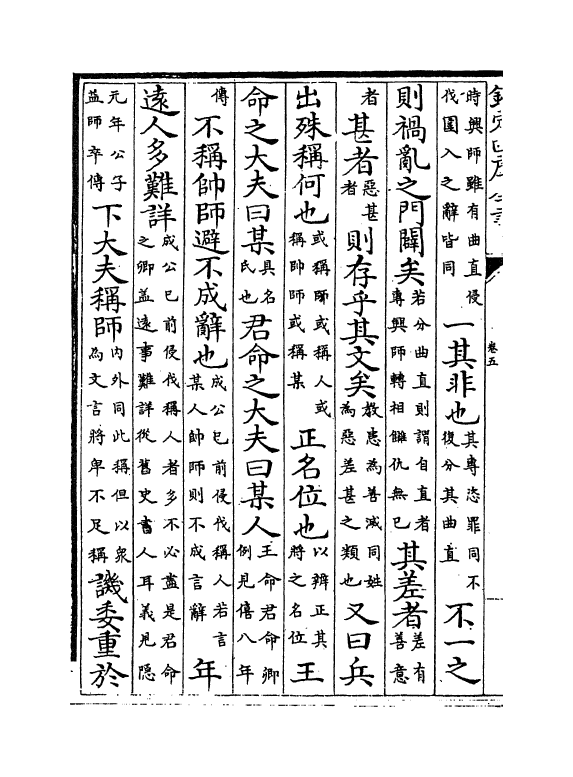 欽定四庫全書
卷五
時興師雖有曲直侵伐圍入之辭皆同一其非也其専恣罪同不復分其曲直不一之
則禍亂之門闢矣若分曲直則謂自直者專興師轉相讎仇無已其差者差有善意
者甚者惡甚者則存乎其文矣救患為善滅同姓為惡差甚之類也又曰兵
出殊稱何也或稱師或稱人或稱帥師或稱某正名位也以辨正其將之名位王
命之大夫曰某具名氏也君命之大夫曰某人王命君命卿例見僖八年
傳不稱帥師避不成辭也成公已前侵伐稱人若言某人帥師則不成言辭年
遠人多難詳成公已前侵伐稱人者多不必盡是君命之卿蓋遠事難詳從舊史書人耳義見隠
元年公子益師卒傳下大夫稱師内外同此稱但以衆為文言將卑不足稱譏委重於